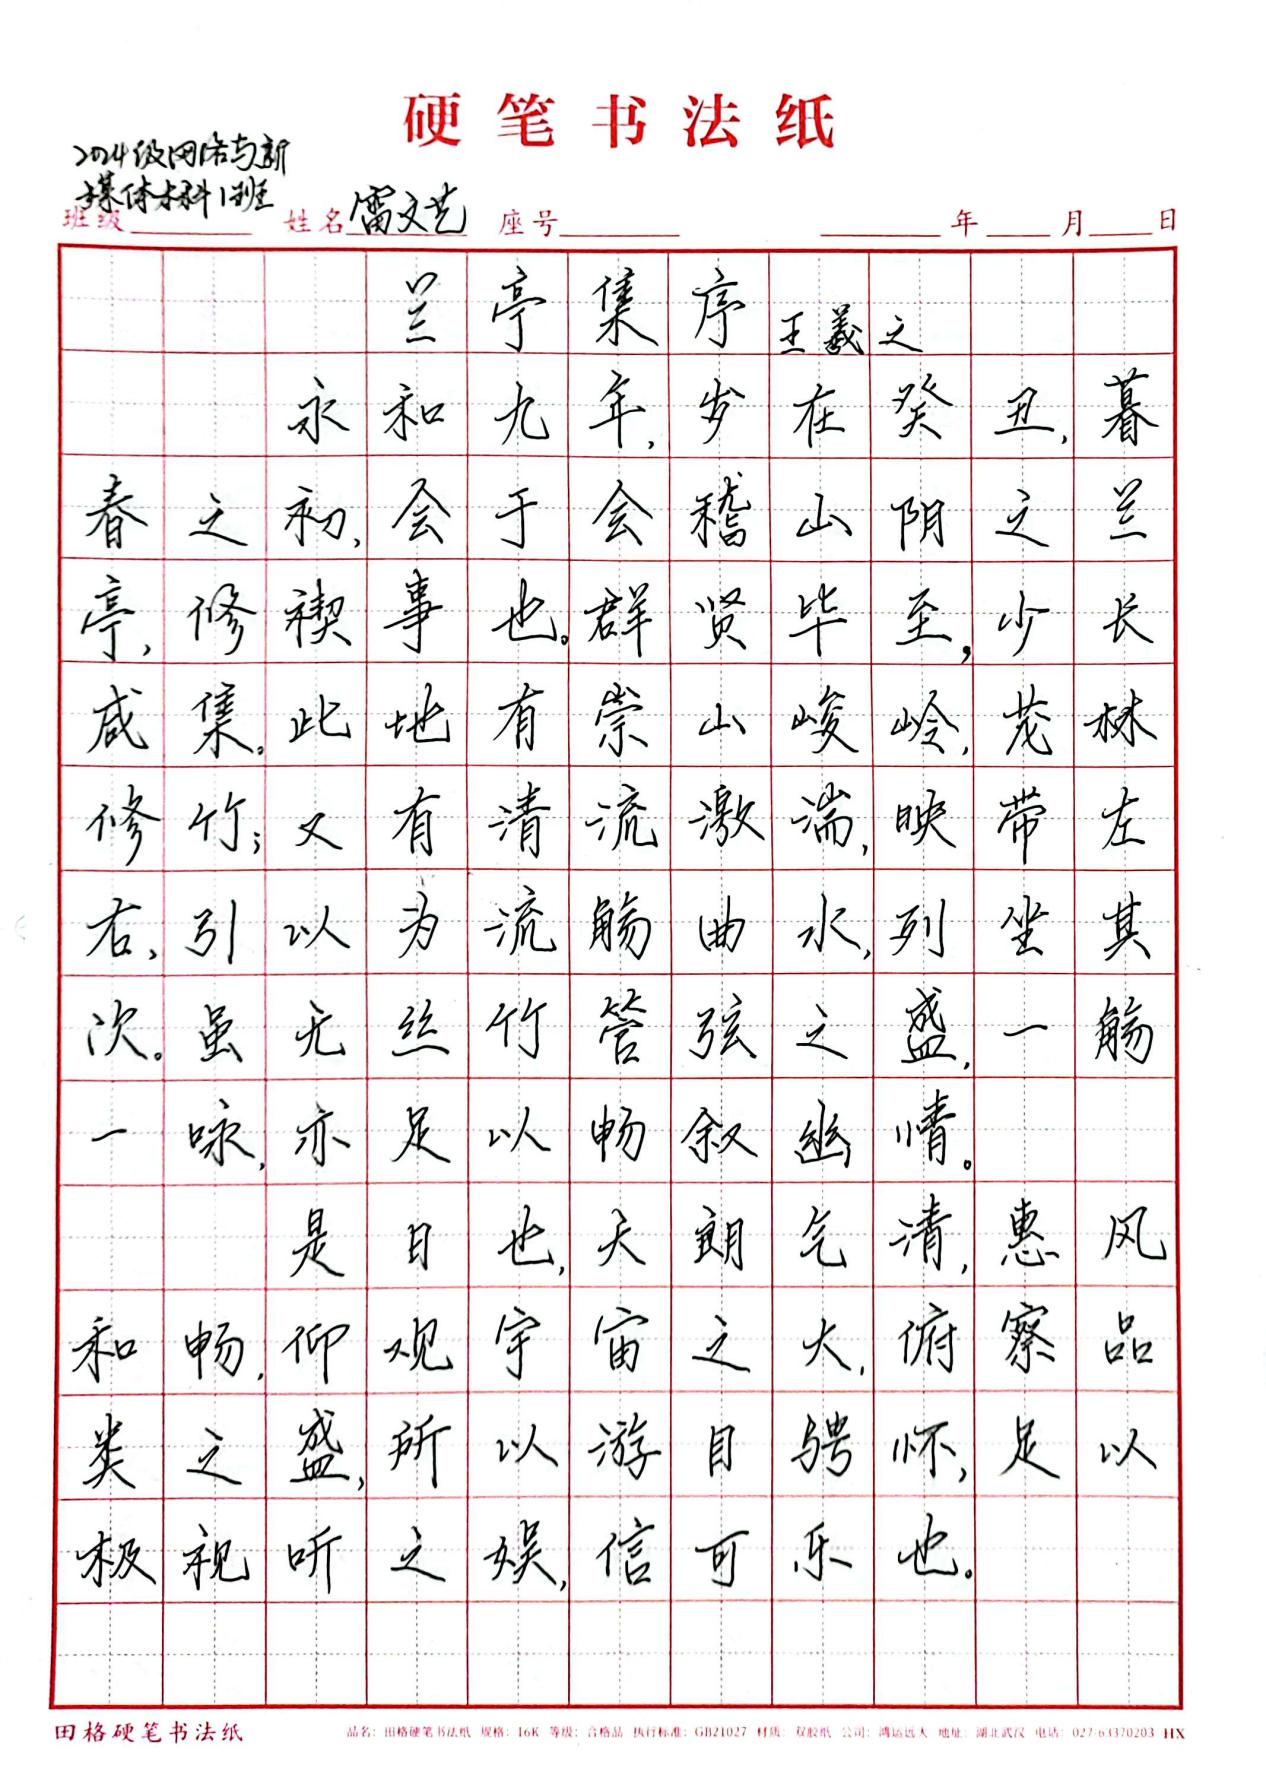 硬笔书法纸
2024级网络与新
媒体本科1班
班级 姓名 雷文艺 座号 年 月 日
兰亭集序 王羲之
永和九年,岁在癸丑,暮
春之初,会于会稽山阴之兰
亭,修禊事也。群贤毕至,少长
咸集。此地有崇山峻岭,茂林
修竹;又有清流激湍,映带左
右,引以为流觞曲水,列坐其
次。虽无丝竹管弦之盛,一觞
一咏,亦足以畅叙幽情。
是日也,天朗气清,惠风
和畅,仰观宇宙之大,俯察品
类之盛,所以游目骋怀,足以
极视听之娱,信可乐也。
田格硬笔书法纸 品名：田格硬笔书法纸 规格：16K 等级：合格品 执行标准：GB21027 材质：双胶纸 公司：鸿运远大 地址：湖北武汉 电话：027-63370203 HX